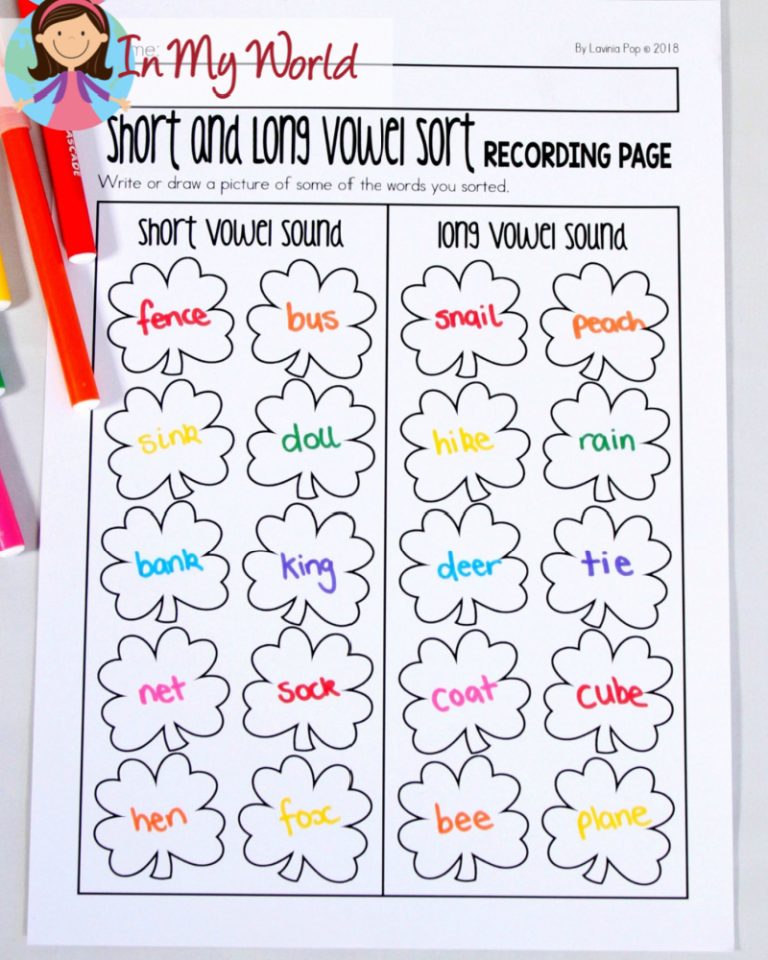 In My World
Name:
By Lavinia Pop © 2018
Short and Long Vowel Sort RECORDING PAGE
Write or draw a picture of some of the words you sorted.
short vowel sound long vowel sound
fence bus snail peach
sink doll hike rain
bank king deer tie
net sock coat cube
hen fox bee plane
CASCADE